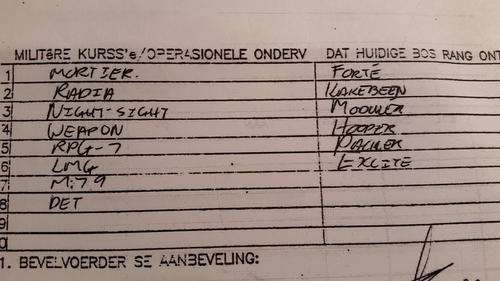 MILITÊRE KURSS'e/OPERASIONELE ONDERV DAT HUIDIGE BOS RANG ONT
1 MORTIER. FORTÉ
2 RADIA KAKEBEEN
3 NIGHT-SIGHT MODULER
4 WEAPON HOOPER
5 RPG-7 PACKER
6 LMG EXCITE
7 M79
8 DET
9
0
1. BEVELVOERDER SE AANBEVELING: